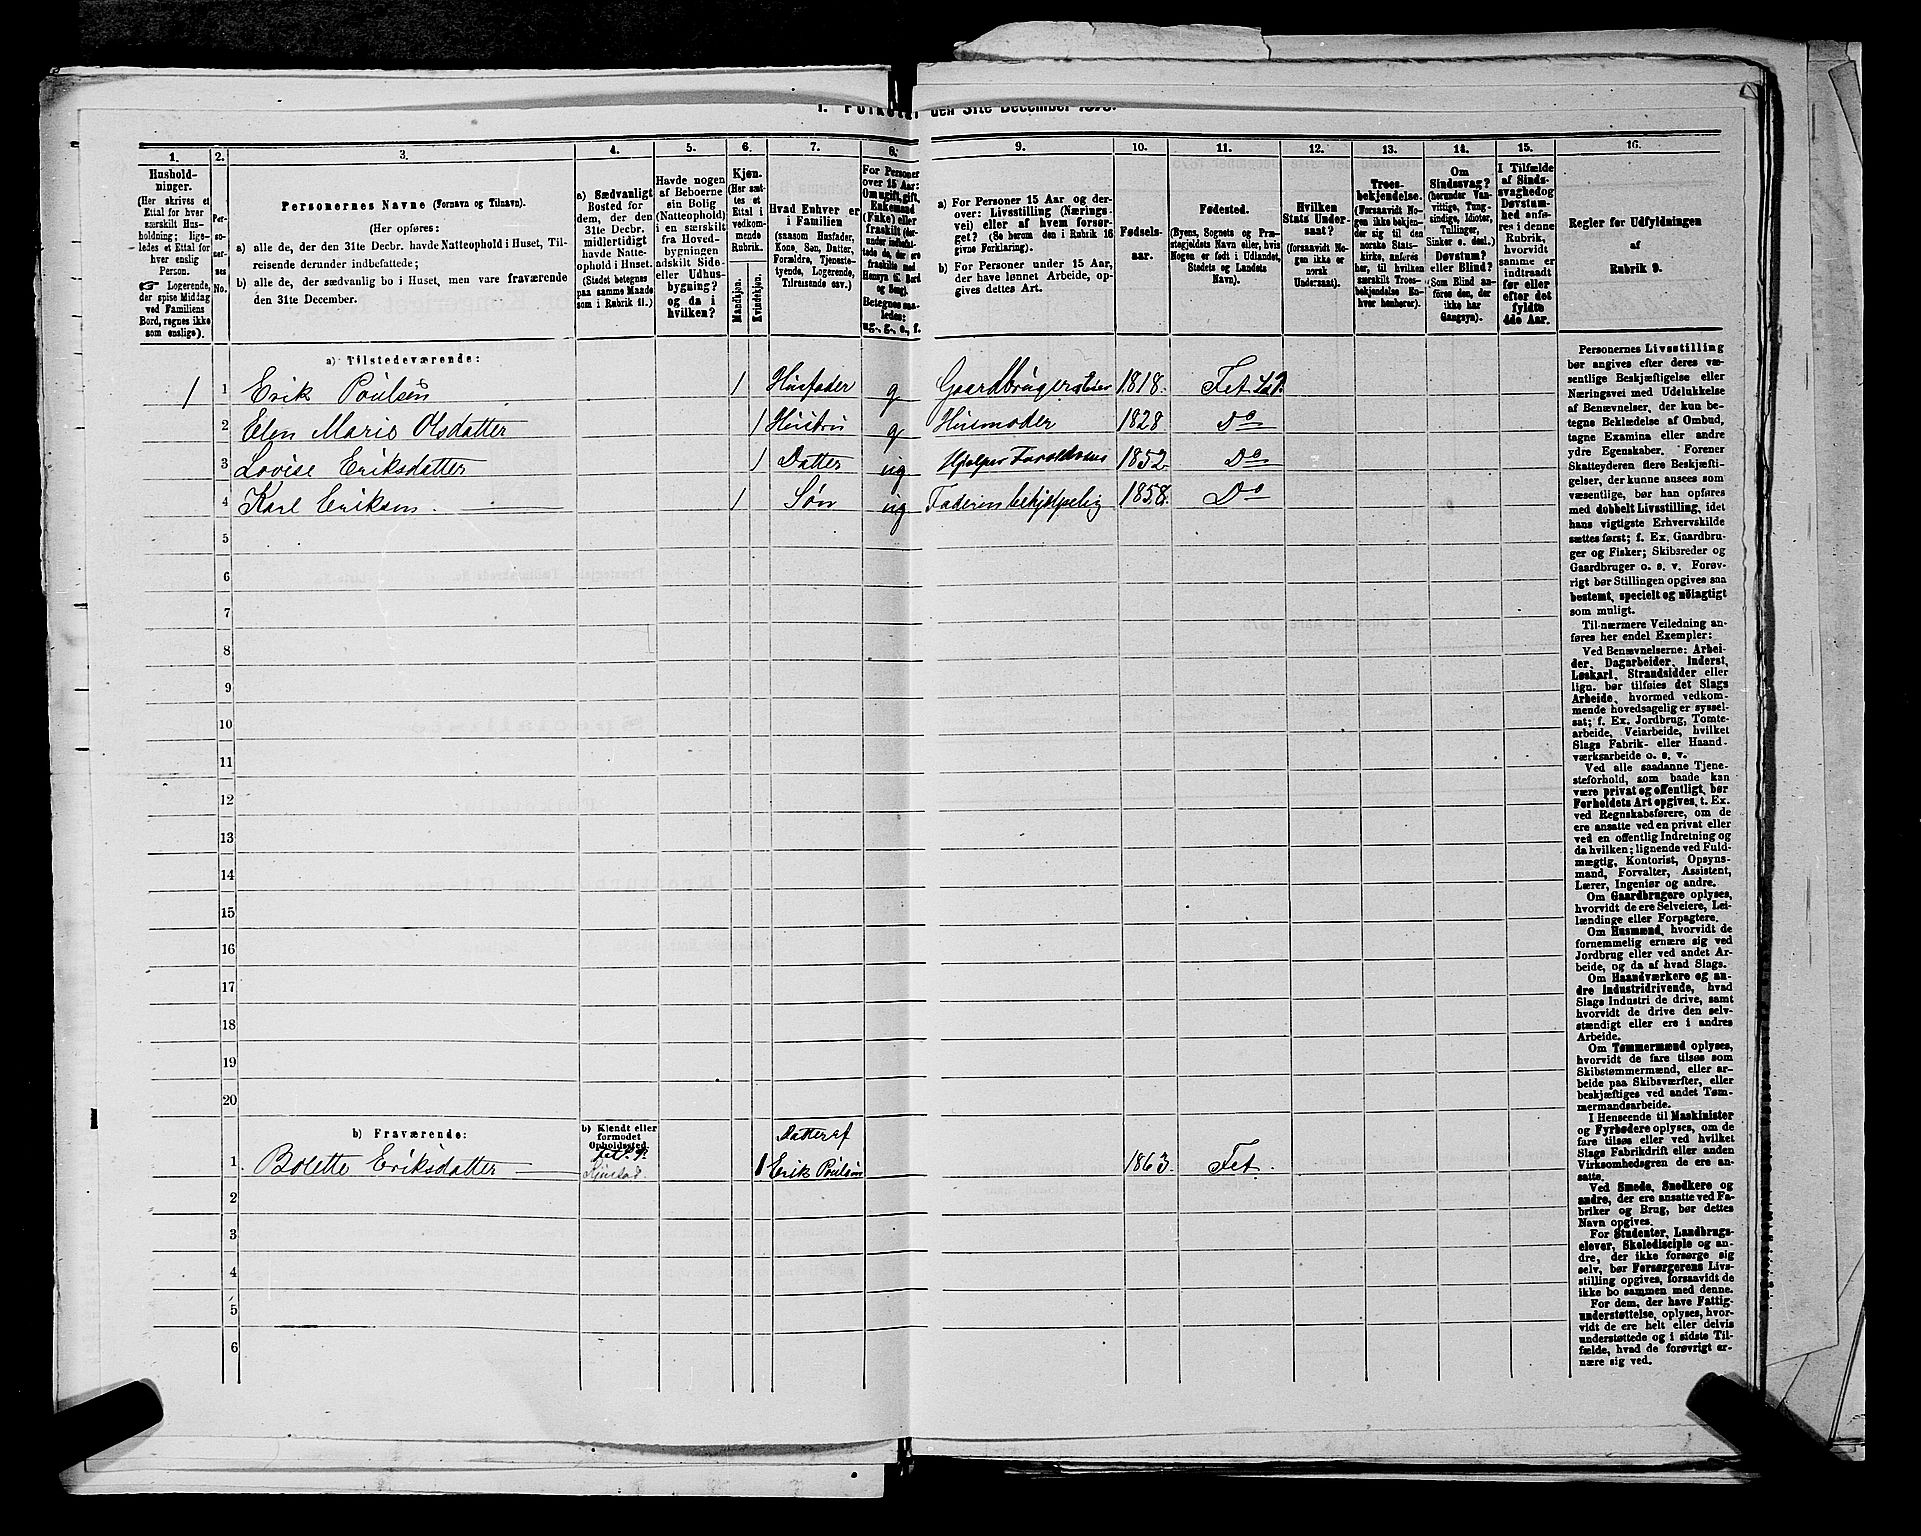 1. Folketal den 31te December 1875.
1. 2. 3. 4. 5. 6. 7. 8. 9. 10. 11. 12. 13. 14. 15. 16.
Hushold-
ninger.
(Her skrives et
Ettal for hver
særskilt Hus-
holdning; lige-
ledes et Ettal for
hver enslig
Person.
☞ Logerende,
der spise Middag
ved Familiens
Bord, regnes ikke
som enslige).
Per-
so-
ner-
nes
No.
Personernes Navne (Fornavn og Tilnavn).
(Her opføres:
a) alle de, der den 31te Decbr. havde Natteophold i Huset, Til-
reisende derunder indbefattede;
b) alle de, der sædvanlig bo i Huset, men vare fraværende
den 31te December.
a) Sædvanligt
Bosted for
dem, der den
31te Decbr.
midlertidigt
havde Natte-
ophold i Huset.
(Stedet betegnes
paa samme Maade
som i Rubrik 11.)
Havde nogen
af Beboerne
sin Bolig
(Natteophold)
i en særskilt
fra Hoved-
bygningen
adskilt Side-
eller Udhus-
bygning?
og da i
hvilken?
Kjøn.
(Her sæt-
tes et
Ettal i
vedkom-
mende
Rubrik.
Mandkjøn.
Kvindekjøn.
Hvad Enhver er
i Familien
(saasom Husfader,
Kone, Søn, Datter,
Forældre, Tjeneste-
tyende, Logerende,
Tilreisende osv.)
For Personer
over 15 Aar:
Om ugift, gift,
Enkemand
(Enke) eller
fraskilt (der-
under indbefat-
tede de, der ere
fraskilte med
Hensyn til Bord
og Seng).
Betegnes saa-
ledes:
ug., g., e., f.
a) For Personer 15 Aar og der-
over: Livsstilling (Nærings-
vei) eller af hvem forsør-
get? (Se herom den i Rubrik 16
givne Forklaring).
b) For Personer under 15 Aar,
der have lønnet Arbeide, op-
gives dettes Art.
Fødsels-
aar.
Fødested.
(Byens, Sognets og Præ-
stegjeldets Navn eller, hvis
Nogen er født i Udlandet,
Stedets og Landets
Navn).
Hvilken
Stats Under-
saat?
(forsaavidt No-
gen ikke er
norsk
Undersaat).
Troes-
bekjendelse.
(Forsaavidt No-
gen ikke bekjen-
der sig til den
norske Stats-
kirke, anføres
her, til hvilken
særskilt Troes-
bekjendelse En-
hver henhører).
Om
Sindssvag?
(herunder Van-
vittige, Tung-
sindige, Idioter,
Tullinger,
Sinker o. desl.)
Døvstum?
eller Blind?
(Som Blind an-
føres den, der
ikke har
Gangsyn).
I Tilfælde
af Sinds-
svaghed og
Døvstum-
hed anfø-
res i denne
Rubrik,
hvorvidt
samme er
indtraadt
før eller
efter det
fyldte
4de Aar.
Regler for Udfyldningen
af
Rubrik 9.
a) Tilstedeværende:
1 1 Erik Poulsen 1 Husfader g Gaardbruger 1818. Fet
2 Elen Marie Olsdatter 1 Hustru g Husmoder 1828 Do
3 Lovise Eriksdatter 1 Datter ug Hjelper Foreldrene 1852 Do
4 Karl Eriksen. 1 Søn ug Faderen behjelpelig 1858. Do
5
6
7
8
9
10
11
12
13
14
15
16
17
18
19
20
b) Fraværende:
b) Kjendt eller
formodet
Opholdssted.
Datter af
1. Bolette Eriksdatter 1 Erik Poulsen 1863. Fet.
2
3
4
5
6
Personernes Livsstilling
bør angives efter deres væ-
sentlige Beskjæftigelse eller
Næringsvei med Udelukkelse
af Benævnelser, der kun be-
tegne Beklædelse af Ombud,
tagne Examina eller andre
ydre Egenskaber. Forener
Skatteyderen flere Beskjæfti-
gelser, der kunne ansees som
væsentlige, bør han opføres
med dobbelt Livsstilling, idet
hans vigtigste Erhvervskilde
sættes først; f. Ex. Gaardbru-
ger og Fisker; Skibsreder og
Gaardbruger o. s. v. Forøv-
rigt bør Stillingen opgives saa
bestemt, specielt og nøiagtigt
som muligt.
Til nærmere Veiledning an-
føres her endel Exempler:
Ved Benævnelserne: Arbei-
der, Dagarbeider, Inderst,
Løskarl, Strandsidder eller
lign. bør tilføies det Slags
Arbeide, hvormed vedkom-
mende hovedsagelig er syssel-
sat; f. Ex. Jordbrug, Tomte-
arbeide, Veiarbeide, hvilket
Slags Fabrik- eller Haand-
værksarbeide o. s. v.
Ved alle saadanne Tjene-
steforhold, som baade kan
være privat og offentligt, bør
Forholdets Art opgives, t. Ex.
ved Regnskabsførere, om de
ere ansatte ved en privat eller
ved en offentlig Indretning og
da hvilken; lignende ved Fuld-
mægtig, Kontorist, Opsyns-
mand, Forvalter, Assistent,
Lærer, Ingeniør og andre.
Om Gaardbrugere oplyses,
hvorvidt de ere Selveiere, Lei-
lændinge eller Forpagtere.
Om Husmænd, hvorvidt de
fornemmelig ernære sig ved
Jordbrug eller ved andet Ar-
beide, og da af hvad Slags.
Om Haandværkere og an-
dre Industridrivende, hvad
Slags Industri de drive, samt
hvorvidt de drive den selv-
stændigt eller ere i andres
Arbeide.
Om Tømmermænd oplyses,
hvorvidt de fare tilsøs som
Skibstømmermænd, eller ar-
beide paa Skibsværfter, eller
beskjæftiges ved andet Tøm-
mermandsarbeide.
I Henseende til Maskinister
og Fyrbødere oplyses, om de
fare tilsøs eller ved hvilket
Slags Fabrikdrift eller anden
Virksomhedsgren de ere an-
satte.
Ved Smede, Snedkere og
andre, der ere ansatte ved Fa-
briker og Brug, bør dettes
Navn opgives.
For Studenter, Landbrugs-
elever, Skoledisciple og an-
dre, der ikke forsørge sig
selv, bør Forsørgerens Livs-
stilling opgives, forsaavidt de
ikke bo sammen med denne.
For dem, der have Fattig-
understøttelse, oplyses, hvor-
vidt de ere helt eller delvis
understøttede og i sidste Til-
fælde, hvad de forøvrigt er-
nære sig ved.